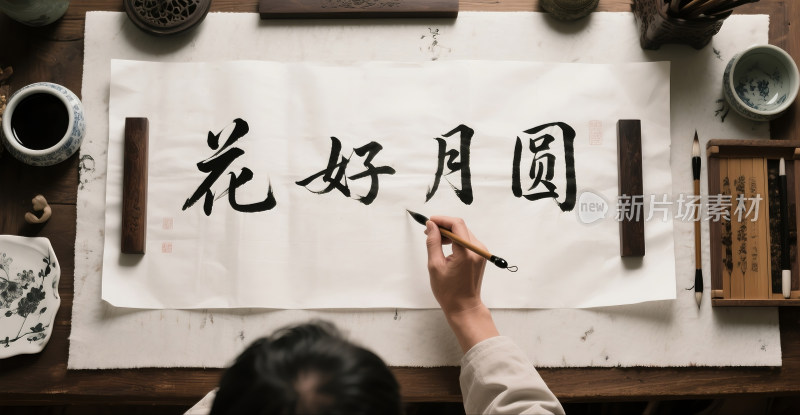 花好月圆
new 新片场